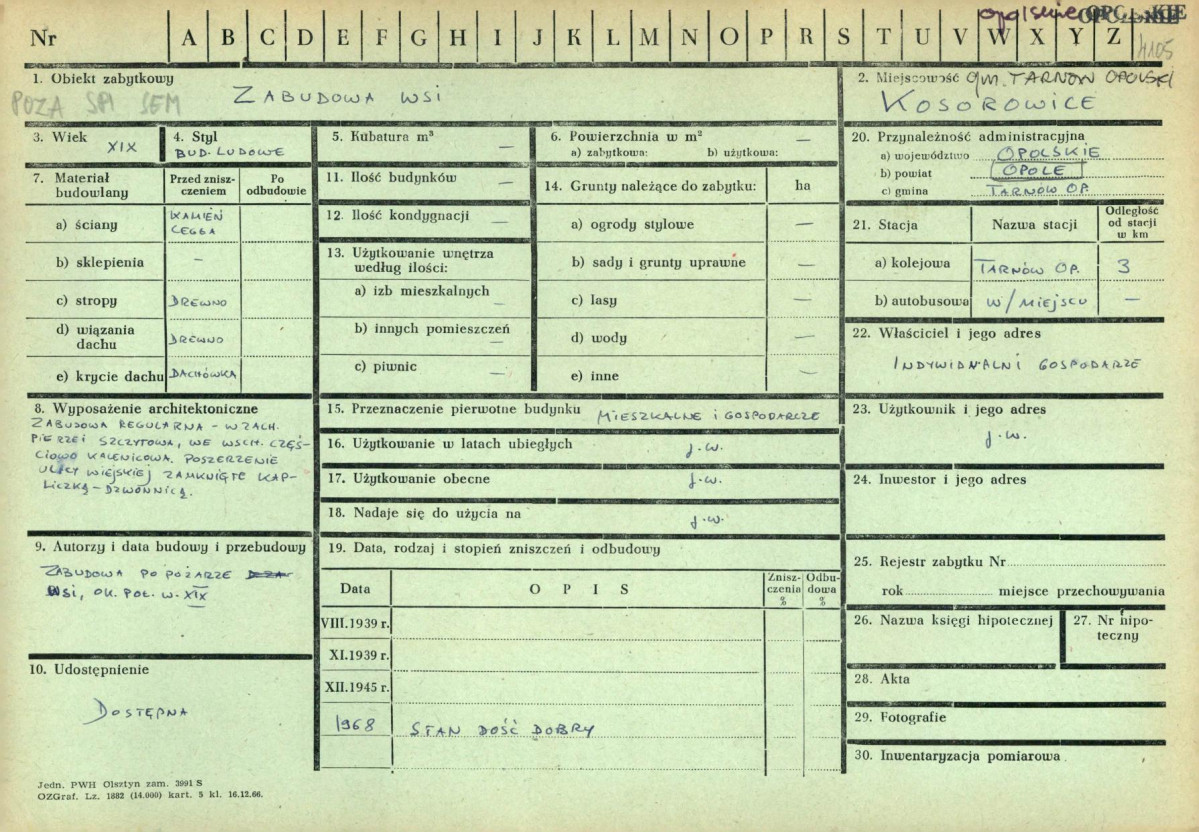 opolskie OPOLSKIE
Nr A B C D E F G H I J K L M N O P R S T U V W X Y Z
4105
1. Obiekt zabytkowy
ZABUDOWA WSI
POZA SPI SEM
2. Miejscowość gm. TARNÓW OPOLSKI
KOSOROWICE
3. Wiek
XIX
4. Styl
BUD. LUDOWE
5. Kubatura m³ —
6. Powierzchnia w m² —
a) zabytkowa: b) użytkowa: —
7. Materiał budowlany
Przed zniszczeniem
Po odbudowie
a) ściany
KAMIEŃ
CEGŁA
b) sklepienia –
c) stropy DREWNO
d) wiązania dachu DREWNO
e) krycie dachu DACHÓWKA
11. Ilość budynków —
12. Ilość kondygnacji —
13. Użytkowanie wnętrza
według ilości:
a) izb mieszkalnych —
b) innych pomieszczeń —
c) piwnic —
14. Grunty należące do zabytku: ha
a) ogrody stylowe —
b) sady i grunty uprawne —
c) lasy —
d) wody —
e) inne —
20. Przynależność administracyjna
a) województwo OPOLSKIE
b) powiat OPOLE
c) gmina TARNÓW OP.
21. Stacja Nazwa stacji
Odległość
od stacji
w km
a) kolejowa TARNÓW OP. 3
b) autobusowa W/MIEJSCU —
22. Właściciel i jego adres
INDYWIDUALNI GOSPODARZE
8. Wyposażenie architektoniczne
ZABUDOWA REGULARNA – W ZACH.
PIERZEI SZCZYTOWA, WE WSCH. CZĘŚ-
CIOWO KALENICOWA. POSZERZENIE
ULICY WIEJSKIEJ ZAMKNIĘTE KAP-
LICZKĄ-DZWONNICĄ.
15. Przeznaczenie pierwotne budynku MIESZKALNE i GOSPODARCZE
16. Użytkowanie w latach ubiegłych j.w.
17. Użytkowanie obecne j.w.
18. Nadaje się do użycia na j.w.
23. Użytkownik i jego adres
j.w.
24. Inwestor i jego adres
9. Autorzy i data budowy i przebudowy
ZABUDOWA PO POŻARZE
WSI, OK. POŁ. W. XIX
10. Udostępnienie
DOSTĘPNA
19. Data, rodzaj i stopień zniszczeń i odbudowy
Data OPIS
Znisz-
czenia
%
Odbu-
dowa
%
VIII.1939 r.
XI.1939 r.
XII.1945 r.
1968 STAN DOŚĆ DOBRY
25. Rejestr zabytku Nr
rok miejsce przechowywania
26. Nazwa księgi hipotecznej
27. Nr hipo-
teczny
28. Akta
29. Fotografie
30. Inwentaryzacja pomiarowa
Jedn. PWH Olsztyn zam. 3991 S
OZGraf. Lz. 1882 (14.000) kart. 5 kl. 16.12.66.